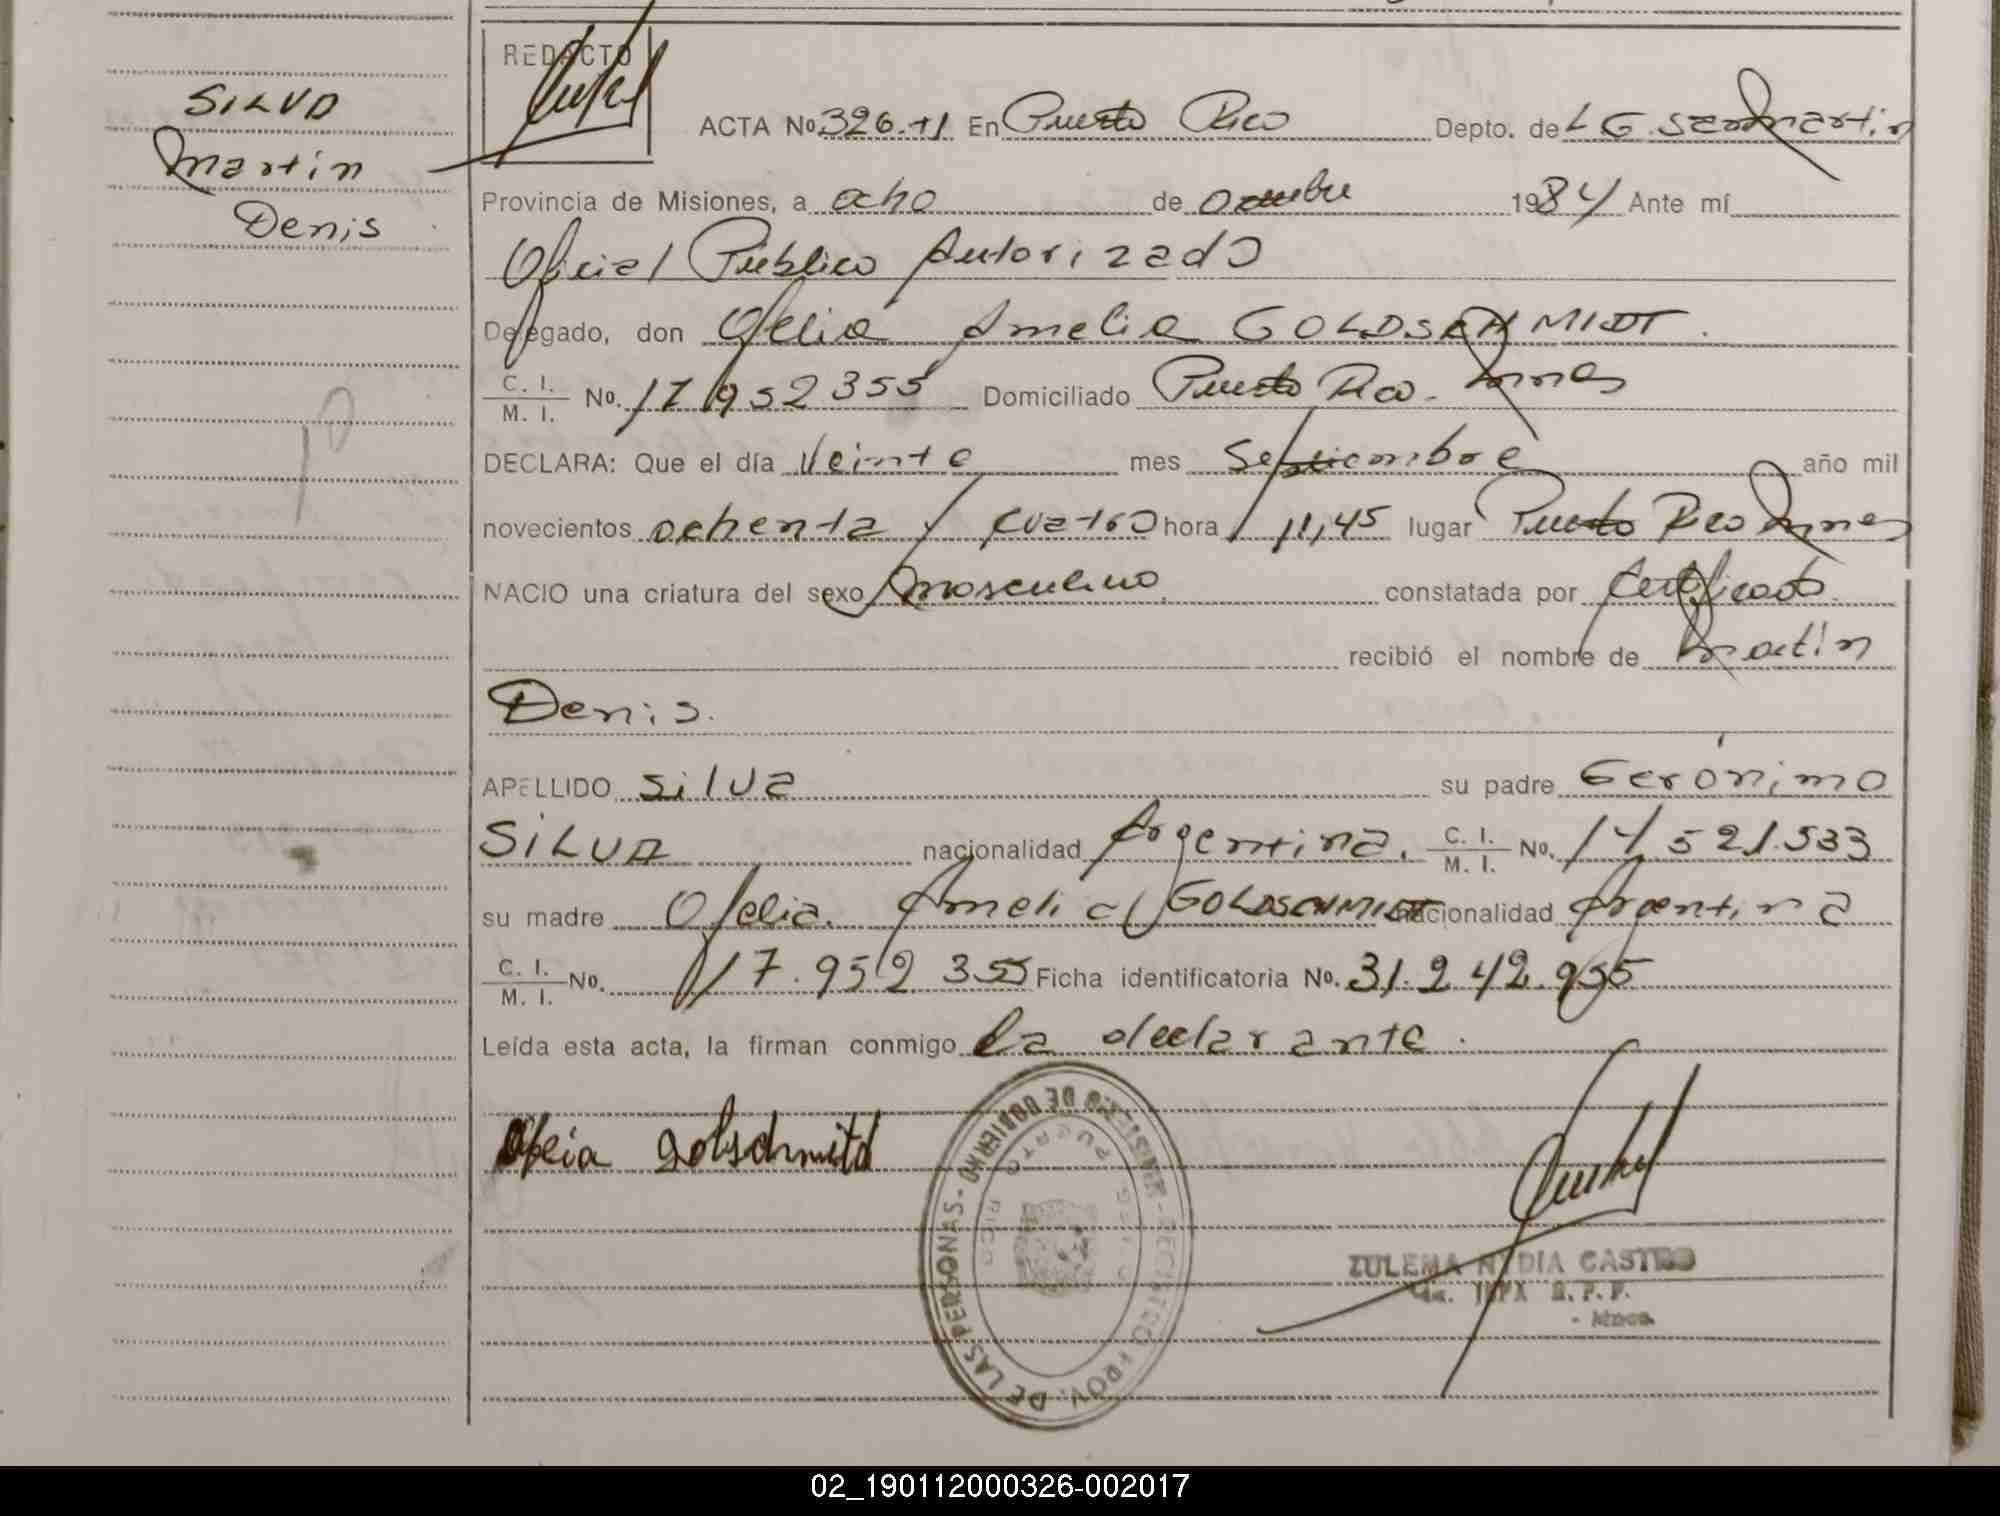 SILVA
Martin
Denis
REDACTO
ACTA No 326. +1 En Puerto Rico Depto. de L G. San Martin
Provincia de Misiones, a ocho de Octubre 1984 Ante mí
Oficial Público Autorizado
Delegado, don Ofelia Amelia GOLDSCHMIDT.
C. I. / M. I. No. 17 952 355 Domiciliado Puerto Rico. Mnes
DECLARA: Que el día Veinte mes Septiembre año mil
novecientos ochenta y cuatro hora 11,45 lugar Puerto Rico Mnes
NACIO una criatura del sexo masculino. constatada por Certificado.
recibió el nombre de Martin
Denis.
APELLIDO Silva su padre Gerónimo
SILVA nacionalidad Argentina. C. I. / M. I. No. 14.521.533
su madre Ofelia. Amelia GOLDSCHMIDT nacionalidad Argentina
C. I. / M. I. No. 17.952 355 Ficha identificatoria No. 31.242.955
Leída esta acta, la firman conmigo la declarante.
Ofelia Golschmitd
DE LAS PERSONAS - MINISTERIO DE GOBIERNO - REGISTRO PROV.
PUERTO RICO
ZULEMA NYDIA CASTRO
02_190112000326-002017